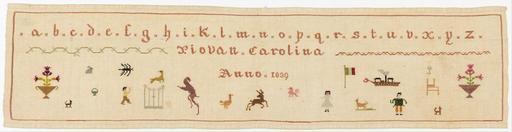 .a.b.c.d.e.f.g.h.i.K.l.m.n.o.p.q.r.s.t.u.v.x.y.z.
Piovan Carolina
Anno.